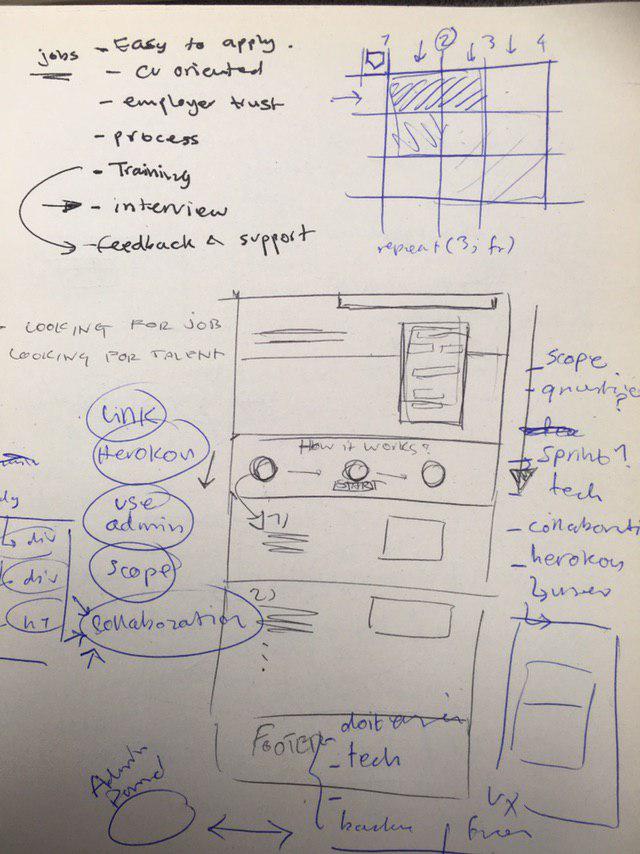 jobs
- Easy to apply.
- CV oriented
- employer trust
- process
- Training
- interview
- feedback & support
1 2 3 4
repeat(3, fr)
- LOOKING FOR JOB
LOOKING FOR TALENT
Link
Herokou
use
admin
scope
collaboration
div
div
h1
How it works?
START
1)
2)
FOOTER
- doit
- tech
-
- scope
-
- sprint 1
tech
- collaborati
- herokou
user
UX
Admin